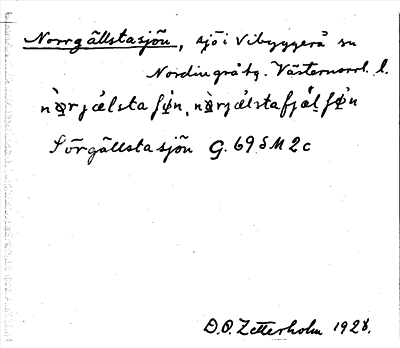 Norrgällstasjön, sjö i Vibyggerå sn
Nordingrå tg. Västernorrl. l.
nò̤rjælsta ʃø̀n, nò̤rjælstafjäḷʃø̀n
Sörgällstasjön G. 69 S M 2 c
D.O. Zetterholm 1928.